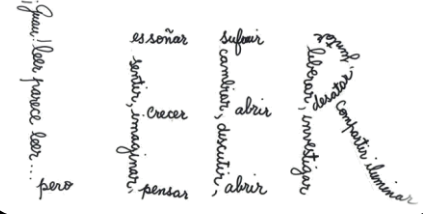 ¡Guau! leer parece leer...
pero
es soñar
sentir, imaginar,
crecer
pensar
cambiar, discutir,
abrir
abrir
liberar, investigar
desatar,
compartir iluminar